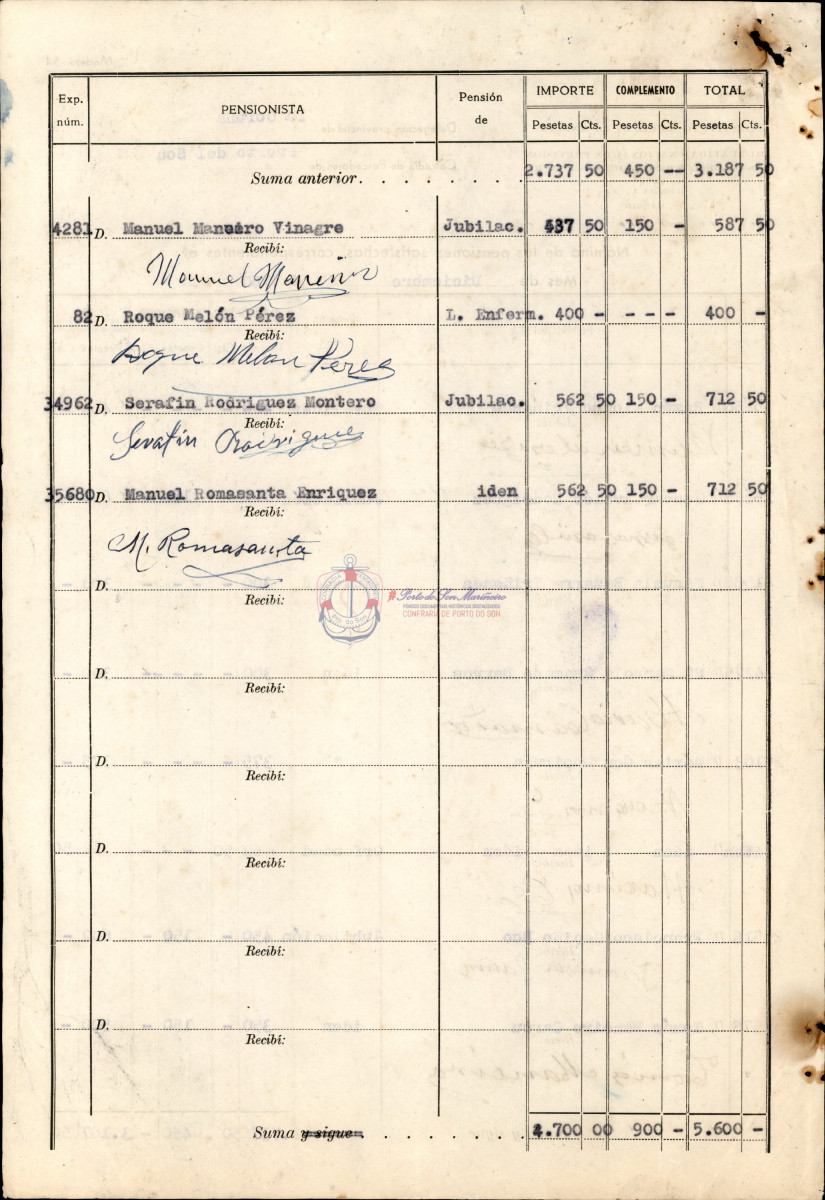 Exp. núm. PENSIONISTA Pensión de IMPORTE COMPLEMENTO TOTAL
Pesetas Cts. Pesetas Cts. Pesetas Cts.
Suma anterior. . . . . . . . 2.737 50 450 — 3.187 50
4281 D. Manuel Maneiro Vinagre Jubilac. 437 50 150 - 587 50
Recibí:
Manuel Maneiro
82 D. Roque Melón Pérez L. Enferm. 400 - - - - 400 -
Recibí:
Roque Melon Perez
34962 D. Serafin Rodriguez Montero Jubilac. 562 50 150 - 712 50
Recibí:
Serafin Rodrigues
35680 D. Manuel Romasanta Enriquez iden 562 50 150 - 712 50
Recibí:
M. Romasanta
D.
Recibí:
#Porto do Son Mariñeiro
FONDOS DOCUMENTAIS HISTÓRICOS DIXITALIZADOS
CONFRARÍA DE PORTO DO SON
D.
Recibí:
D.
Recibí:
D.
Recibí:
D.
Recibí:
D.
Recibí:
Suma y sigue . . . . . . . . 4.700 00 900 - 5.600 -